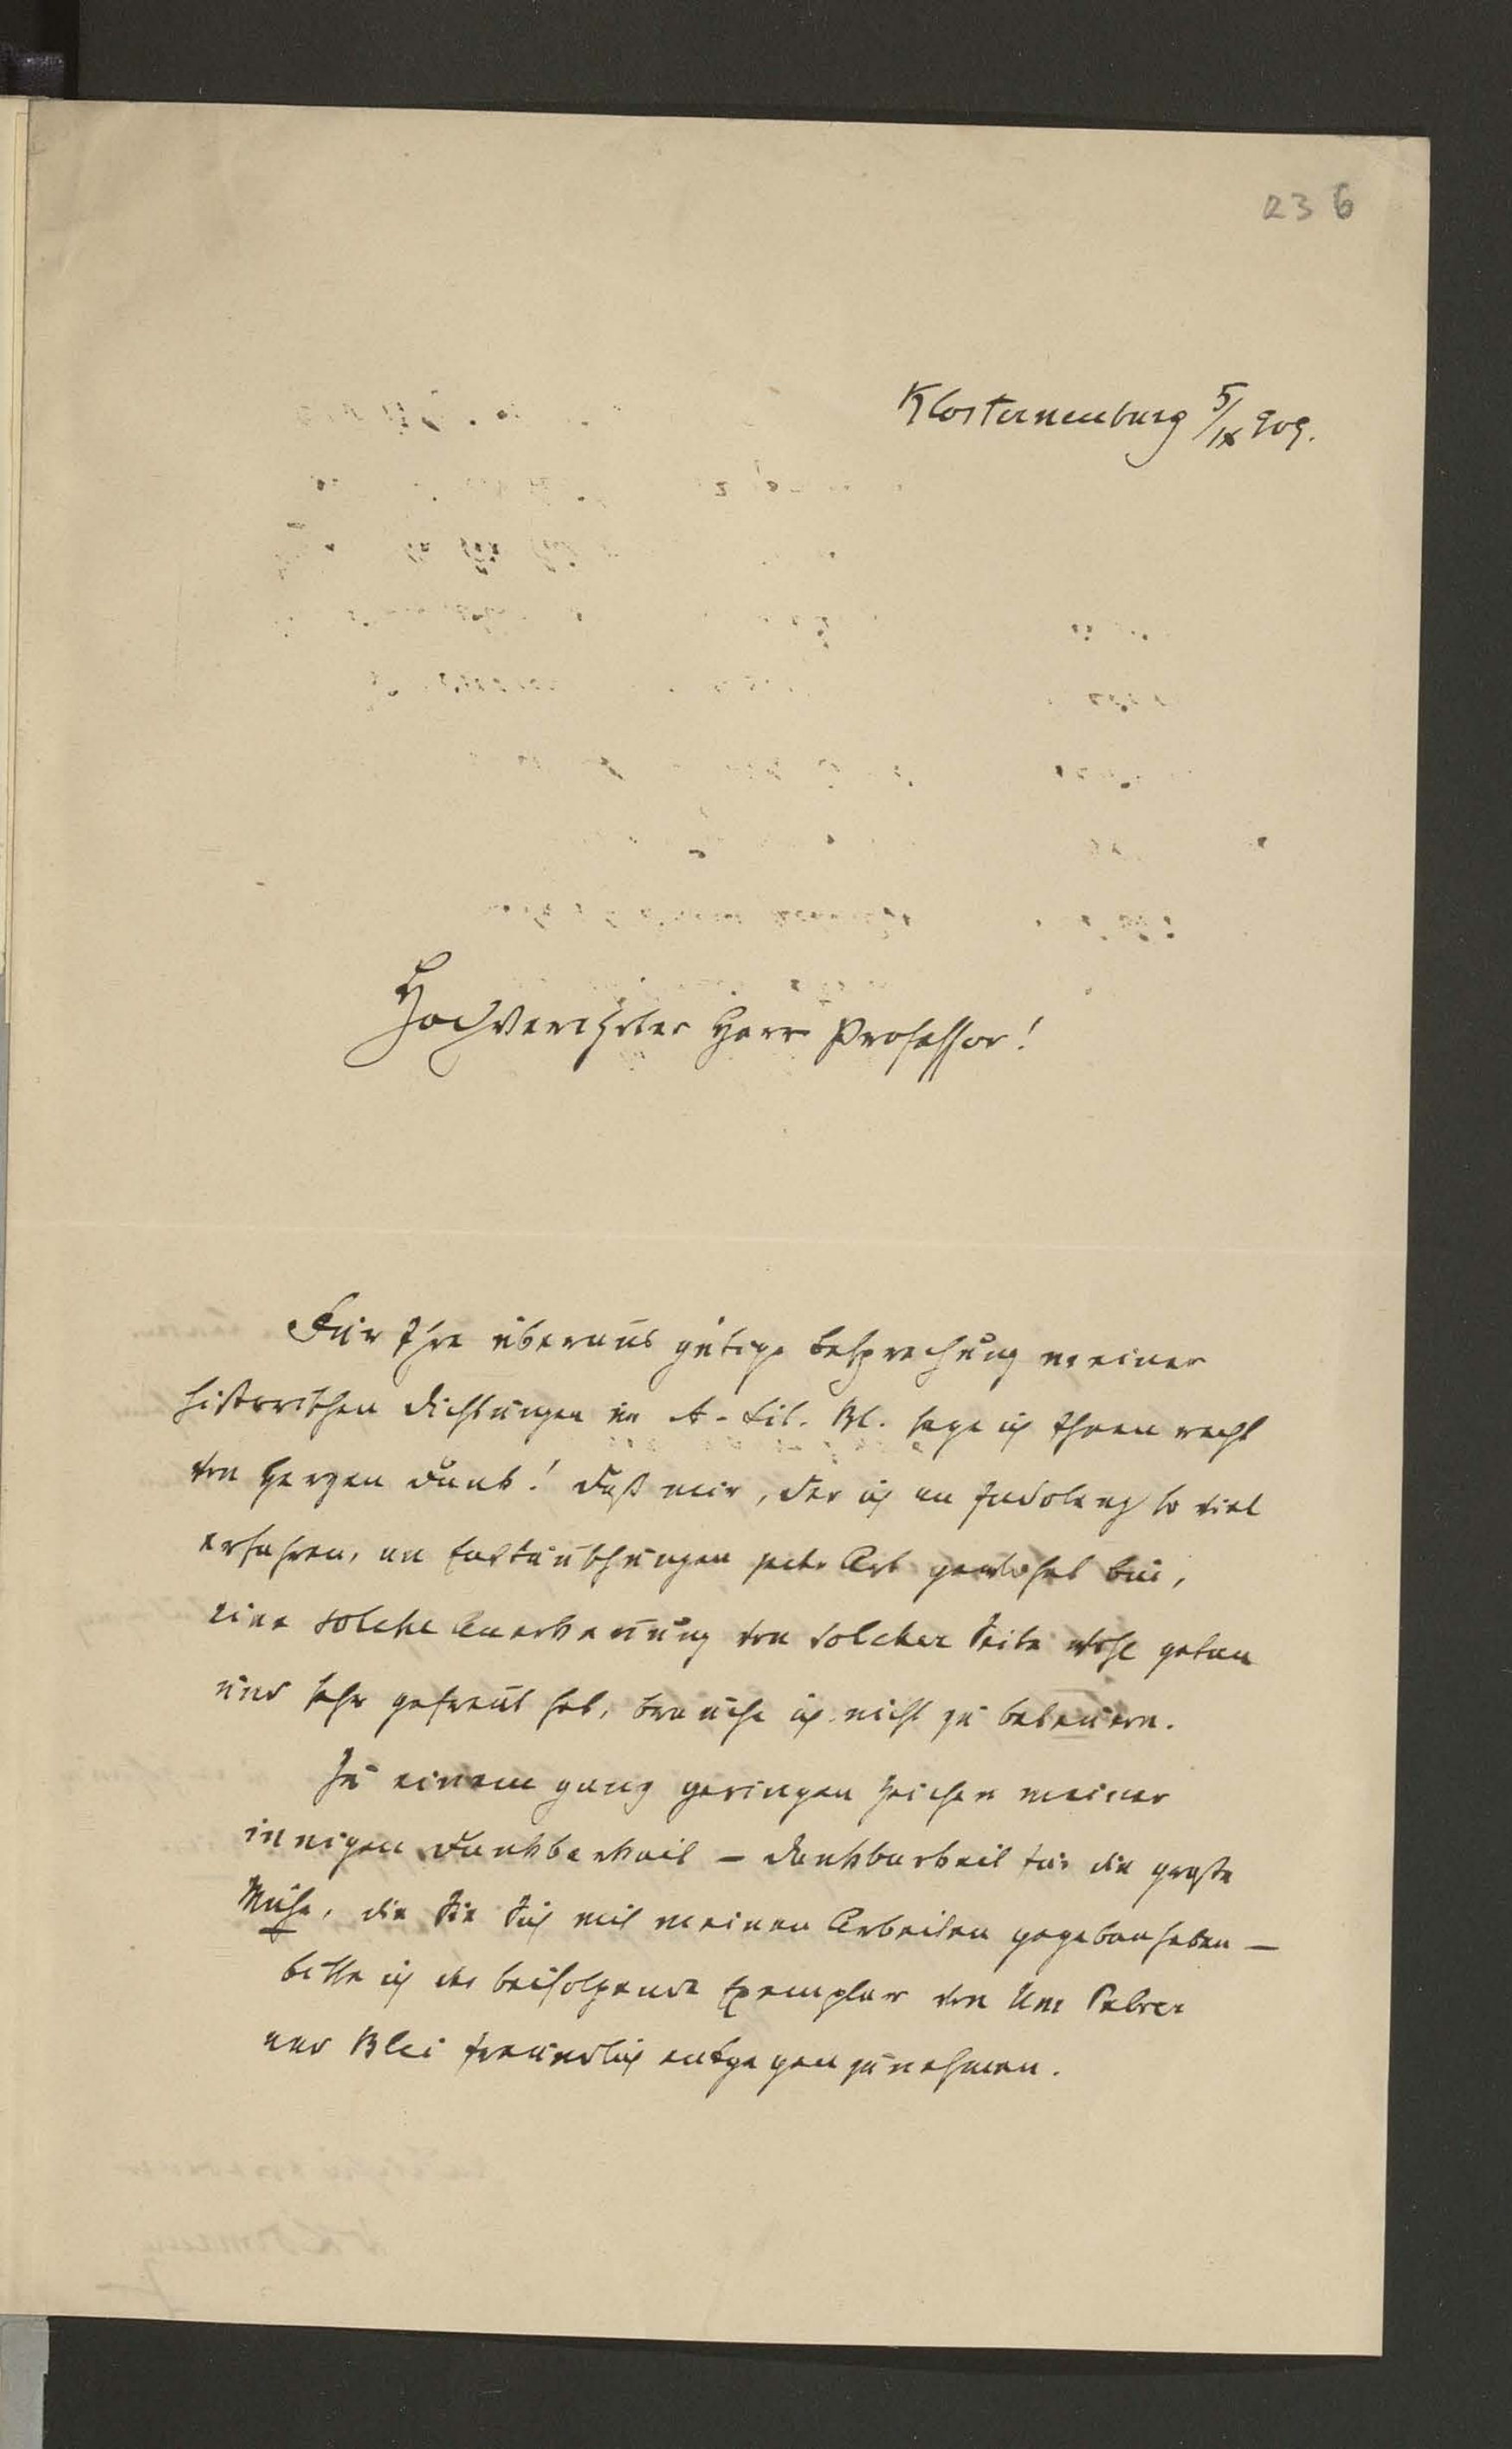 236
Klosterneuburg 5/IX 909.
Hochverehrter Herr Professor!
Für Ihre überaus gütige Besprechung meiner
historischen Dichtungen im A. Lit. Bl. sage ich Ihnen recht
von Herzen Dank! Daß mir, der ich an Indolenz so viel
erfahren, an Enttäuschungen jeder Art gewohnt bin,
eine solche Anerkennung von solcher Seite wohl getan
und sehr gefreut hat, brauche ich nicht zu beteuern.
Zu einem ganz geringen Zeichen meiner
innigen Dankbarkeit – Dankbarkeit für die große
Mühe, die Sie Sich mit meinen Arbeiten gegeben haben –
bitte ich das beifolgende Exemplar von Um Palmer
und Blei freundlich entgegenzunehmen.